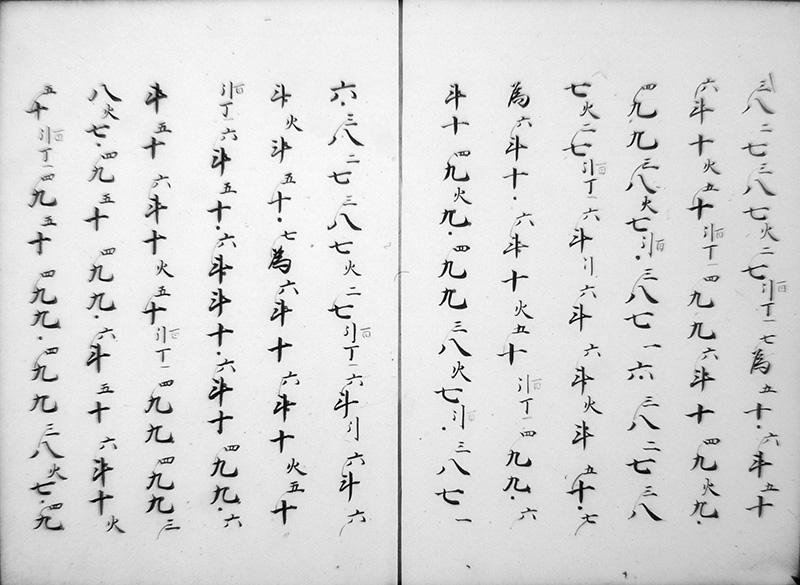 三八二七三八七火二七引丁一七為五十・六斗五十
六斗十火五十引丁一四九九六斗十四九火九・
四九九三八火七引・三八七一六・三八二七三八
七火二七引丁一六斗引六斗六斗火斗五十・七
為六斗十・六斗十火五十引丁一四九九・六
斗十四九火九・四九九三八火七引・三八七一
六・三八二七三八七火二七引丁一六斗引六斗六
斗火斗五十・七為六斗十六斗十火五十
引丁一六斗五十・六斗斗十・六斗十四九九・六
斗五十六斗十火五十引丁一四九九四九九三
八火七・四九五十四九九・六斗五十六斗十火
五十引丁一四九五十四九九・四九九三八火七・四九